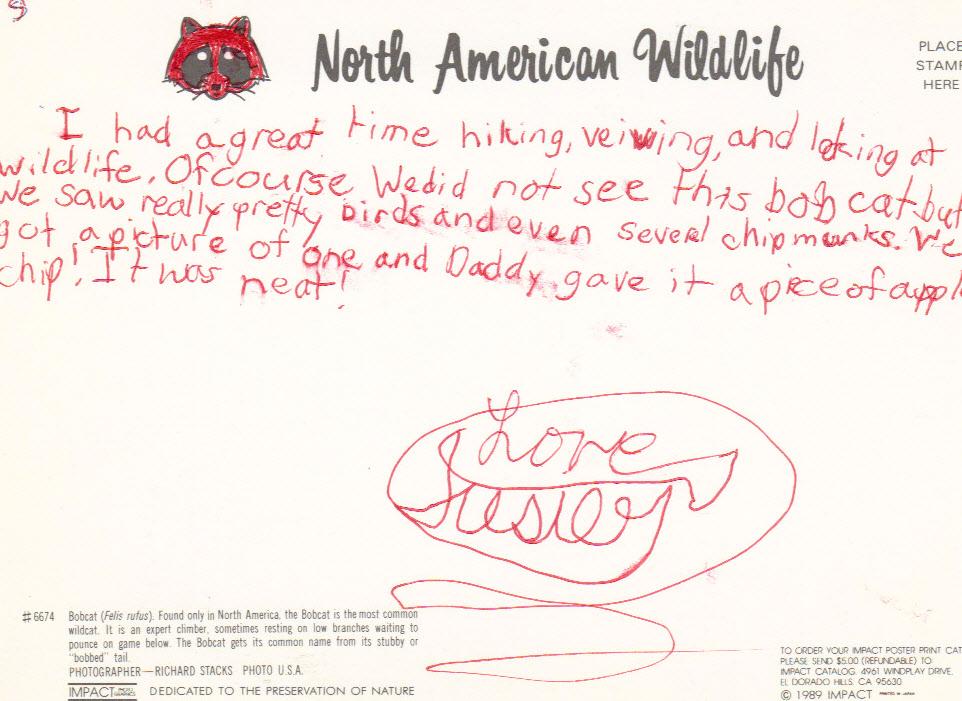 North American Wildlife
PLACE
STAMP
HERE
I had a great time hiking, veiwing, and loking at
wildlife. Of course We did not see this bob cat but
we saw really pretty birds and even severl chipmunks. We
got a picture of one and Daddy gave it a piece of appl
chip! It was neat!
Love
#6674 Bobcat (Felis rufus). Found only in North America, the Bobcat is the most common
wildcat. It is an expert climber, sometimes resting on low branches waiting to
pounce on game below. The Bobcat gets its common name from its stubby or
"bobbed" tail.
PHOTOGRAPHER—RICHARD STACKS PHOTO U.S.A.
IMPACT PHOTO GRAPHICS DEDICATED TO THE PRESERVATION OF NATURE
TO ORDER YOUR IMPACT POSTER PRINT CAT
PLEASE SEND $5.00 (REFUNDABLE) TO
IMPACT CATALOG. 4961 WINDPLAY DRIVE,
EL DORADO HILLS. CA 95630
© 1989 IMPACT PRINTED IN JAPAN